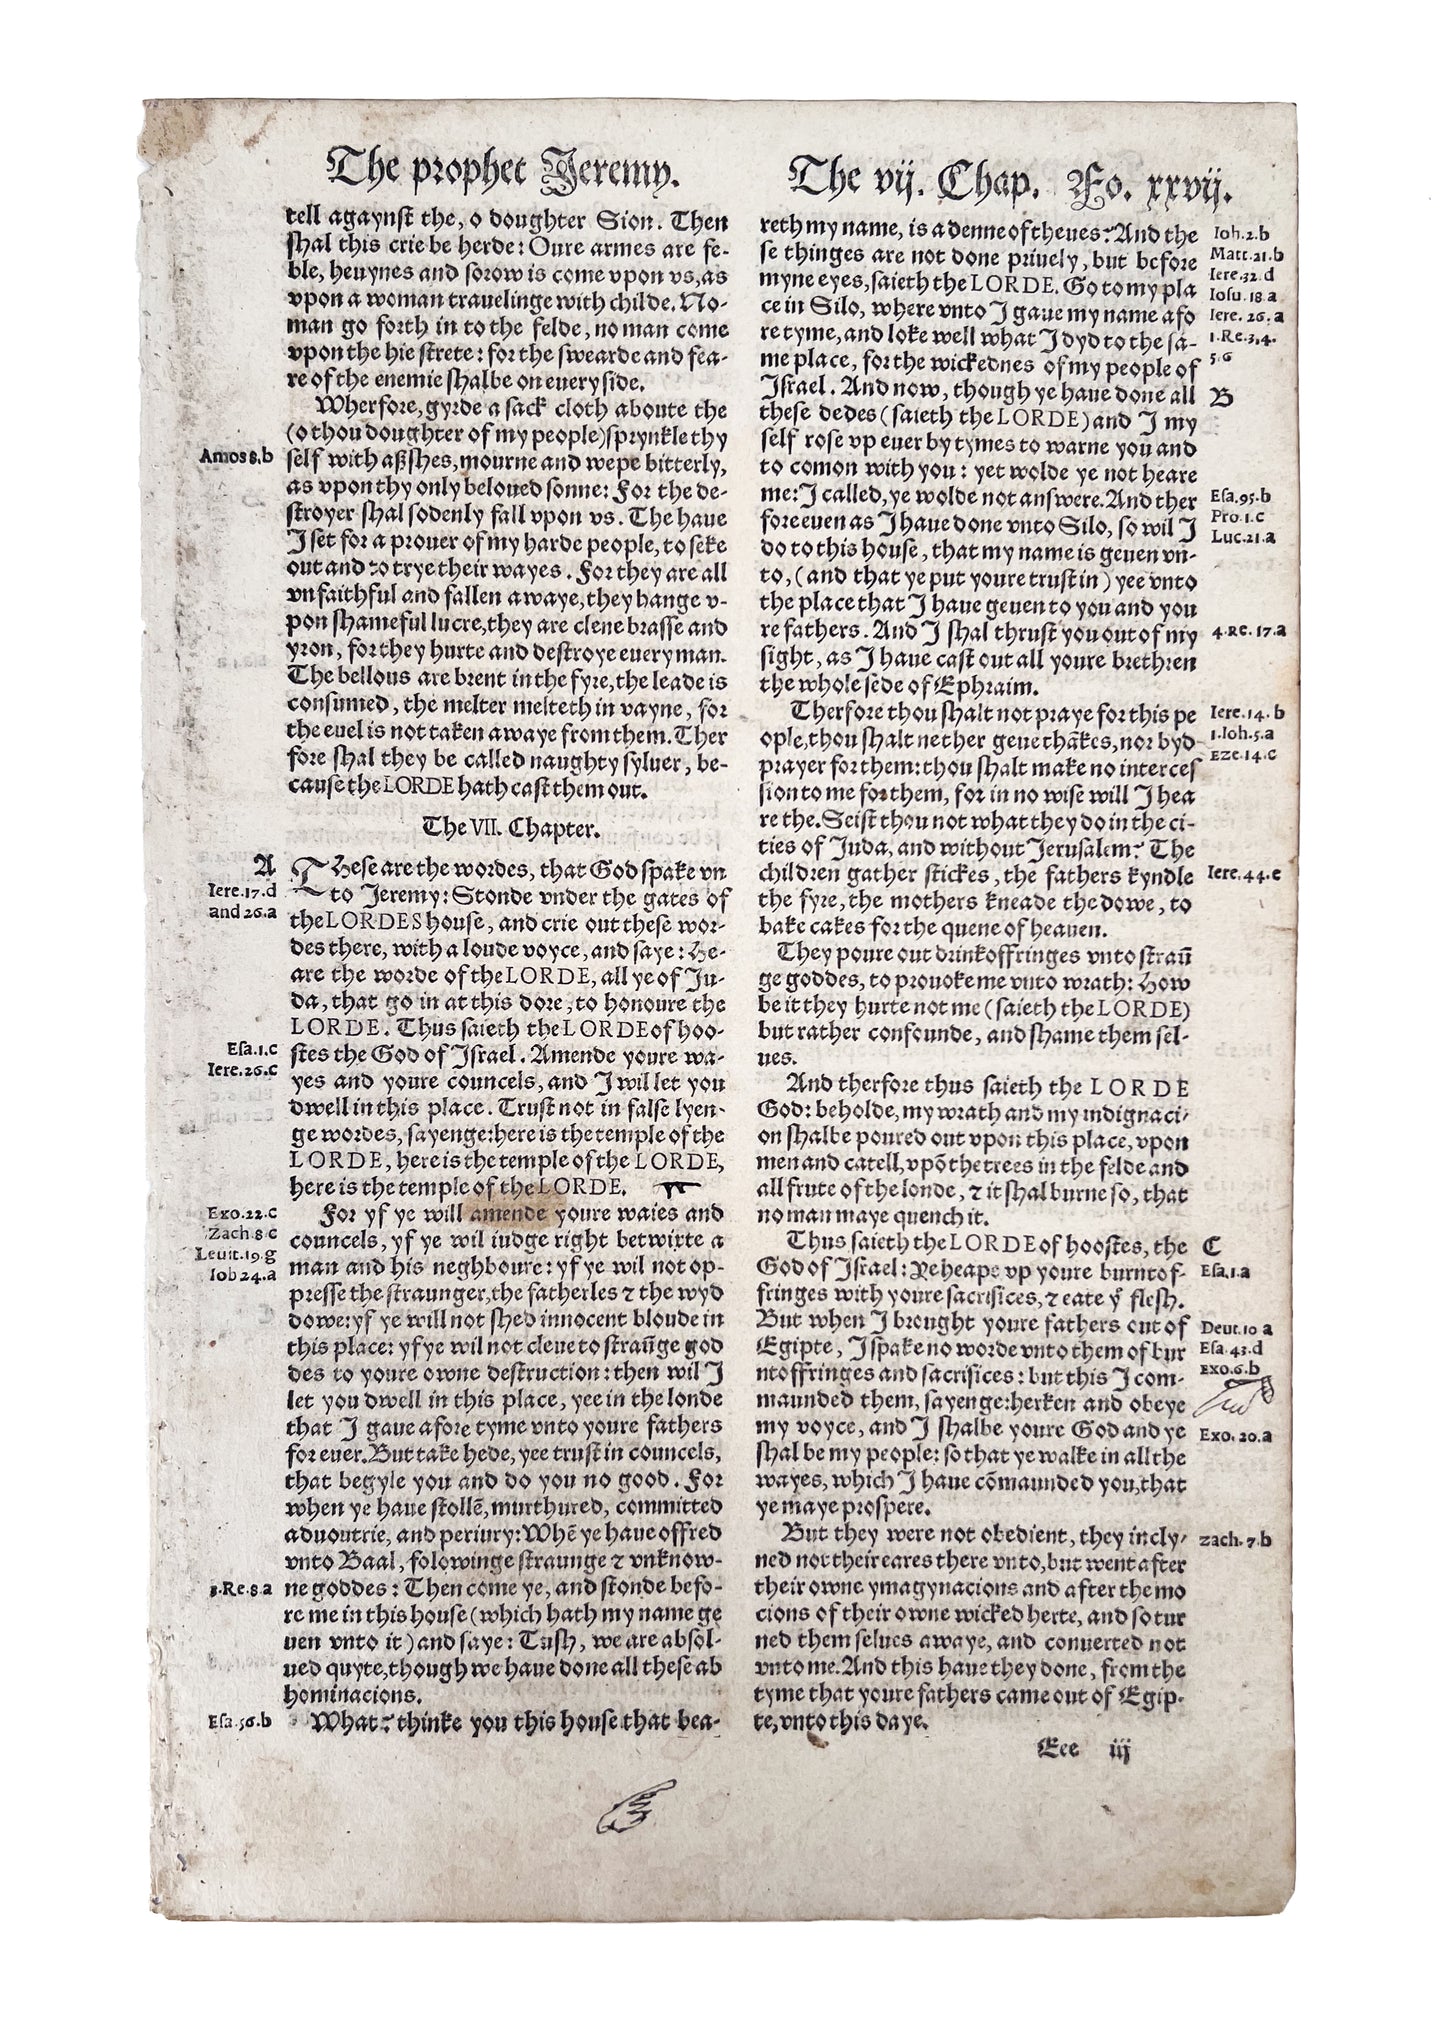 The prophet Jeremy.
tell agaynst the, o doughter Sion. Then
shal this crie be herde: Oure armes are fe-
ble, heuynes and sorow is come vpon vs, as
vpon a woman travelinge with childe. No-
man go forth in to the felde, no man come
vpon the hie strete: for the swearde and fea-
re of the enemie shalbe on euery side.
Wherfore, gyrde a sack cloth aboute the
(o thou doughter of my people) sprynkle thy
Amos 8.b
self with aßshes, mourne and wepe bitterly,
as vpon thy only beloued sonne: For the de-
stroyer shal sodenly fall vpon vs. The haue
I set for a prouer of my harde people, to seke
out and to trye their wayes. For they are all
vnfaithful and fallen awaye, they hange v-
pon shameful lucre, they are clene brasse and
yron, for they hurte and destroye euery man.
The bellous are brent in the fyre, the leade is
consumed, the melter melteth in vayne, for
the euel is not taken awaye from them. Ther
fore shal they be called naughty syluer, be-
cause the LORDE hath cast them out.
The VII. Chapter.
A
These are the wordes, that God spake vn
Iere.17.d
to Jeremy: Stonde vnder the gates of
and 26.a
the LORDES house, and crie out these wor-
des there, with a loude voyce, and saye: He-
are the worde of the LORDE, all ye of Ju-
da, that go in at this dore, to honoure the
LORDE. Thus saieth the LORDE of hoo-
Esa.1.c
stes the God of Israel. Amende youre wa-
Iere.26.c
yes and youre councels, and I wil let you
dwell in this place. Trust not in false lyen-
ge wordes, sayenge: here is the temple of the
LORDE, here is the temple of the LORDE,
here is the temple of the LORDE.
Exo.22.c
For yf ye will amende youre waies and
Zach.8 c
councels, yf ye wil iudge right betwixte a
Leuit.19.g
man and his neghboure: yf ye wil not op-
Iob 24.a
presse the straunger, the fatherles ⁊ the wyd
dowe: yf ye will not shed innocent bloude in
this place: yf ye wil not cleue to straũge god
des to youre owne destruction: then wil I
let you dwell in this place, yee in the londe
that I gaue afore tyme vnto youre fathers
for euer. But take hede, yee trust in councels,
that begyle you and do you no good. For
when ye haue stollẽ, murthured, committed
aduoutrie, and periury: Whẽ ye haue offred
vnto Baal, folowinge straunge ⁊ vnknow-
3.Re.8.a
ne goddes: Then come ye, and stonde befo-
re me in this house (which hath my name ge
uen vnto it) and saye: Tush, we are absol-
ued quyte, though we haue done all these ab
hominacions.
Esa.56.b
What? thinke you this house that bea-
The vij. Chap. Fo. xxvij.
reth my name, is a denne of theues? And the
Ioh.2.b
se thinges are not done priuely, but before
Matt.21.b
myne eyes, saieth the LORDE. Go to my pla
Iere.32.d
ce in Silo, where vnto I gaue my name afo
Iosu.18.a
re tyme, and loke well what I dyd to the sa-
Iere.26.a
me place, for the wickednes of my people of
1.Re.3,4.
5.6
Israel. And now, though ye haue done all
B
these dedes (saieth the LORDE) and I my
self rose vp euer by tymes to warne you and
to comon with you: yet wolde ye not heare
me: I called, ye wolde not answere. And ther
Esa.95.b
fore euen as I haue done vnto Silo, so wil I
Pro.1.c
do to this house, that my name is geuen vn-
Luc.21.a
to, (and that ye put youre trust in) yee vnto
the place that I haue geuen to you and you
re fathers. And I shal thrust you out of my
4.Re.17.a
sight, as I haue cast out all youre brethren
the whole sede of Ephraim.
Therfore thou shalt not praye for this pe
Iere.14.b
ople, thou shalt nether geue thãkes, nor byd
1.Ioh.5.a
prayer for them: thou shalt make no interces
Eze.14.c
sion to me for them, for in no wise will I hea
re the. Seist thou not what they do in the ci-
ties of Juda, and without Jerusalem? The
children gather stickes, the fathers kyndle
Iere.44.e
the fyre, the mothers kneade the dowe, to
bake cakes for the quene of heauen.
They poure out drinkoffringes vnto straũ
ge goddes, to prouoke me vnto wrath: How
be it they hurte not me (saieth the LORDE)
but rather confounde, and shame them sel-
ues.
And therfore thus saieth the LORDE
God: beholde, my wrath and my indignaci-
on shalbe poured out vpon this place, vpon
men and catell, vpõ the trees in the felde and
all frute of the londe, ⁊ it shal burne so, that
no man maye quench it.
Thus saieth the LORDE of hoostes, the
C
God of Israel: Ye heape vp youre burntof-
Esa.1.a
fringes with youre sacrifices, ⁊ eate yͤ flesh.
But when I brought youre fathers out of
Deut.10 a
Egipte, I spake no worde vnto them of bur
Esa.43.d
ntoffringes and sacrifices: but this I com-
Exo.6.b
maunded them, sayenge: herken and obeye
my voyce, and I shalbe youre God and ye
Exo.20.a
shal be my people: so that ye walke in all the
wayes, which I haue cõmaunded you, that
ye maye prospere.
But they were not obedient, they incly-
Zach.7.b
ned not their eares there vnto, but went after
their owne ymagynacions and after the mo
cions of their owne wicked herte, and so tur
ned them selues awaye, and conuerted not
vnto me. And this haue they done, from the
tyme that youre fathers came out of Egip-
te, vnto this daye.
Eee iij